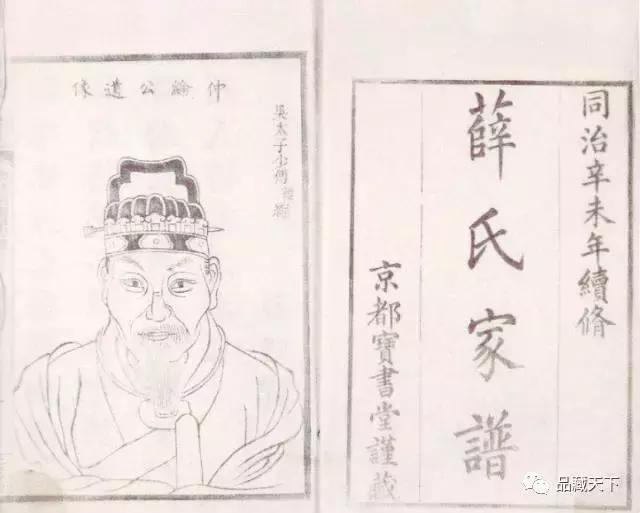 同治辛未年續脩
薛氏家譜
京都寶書堂謹藏
仲公遺像
吳太子少傅
品藏天下